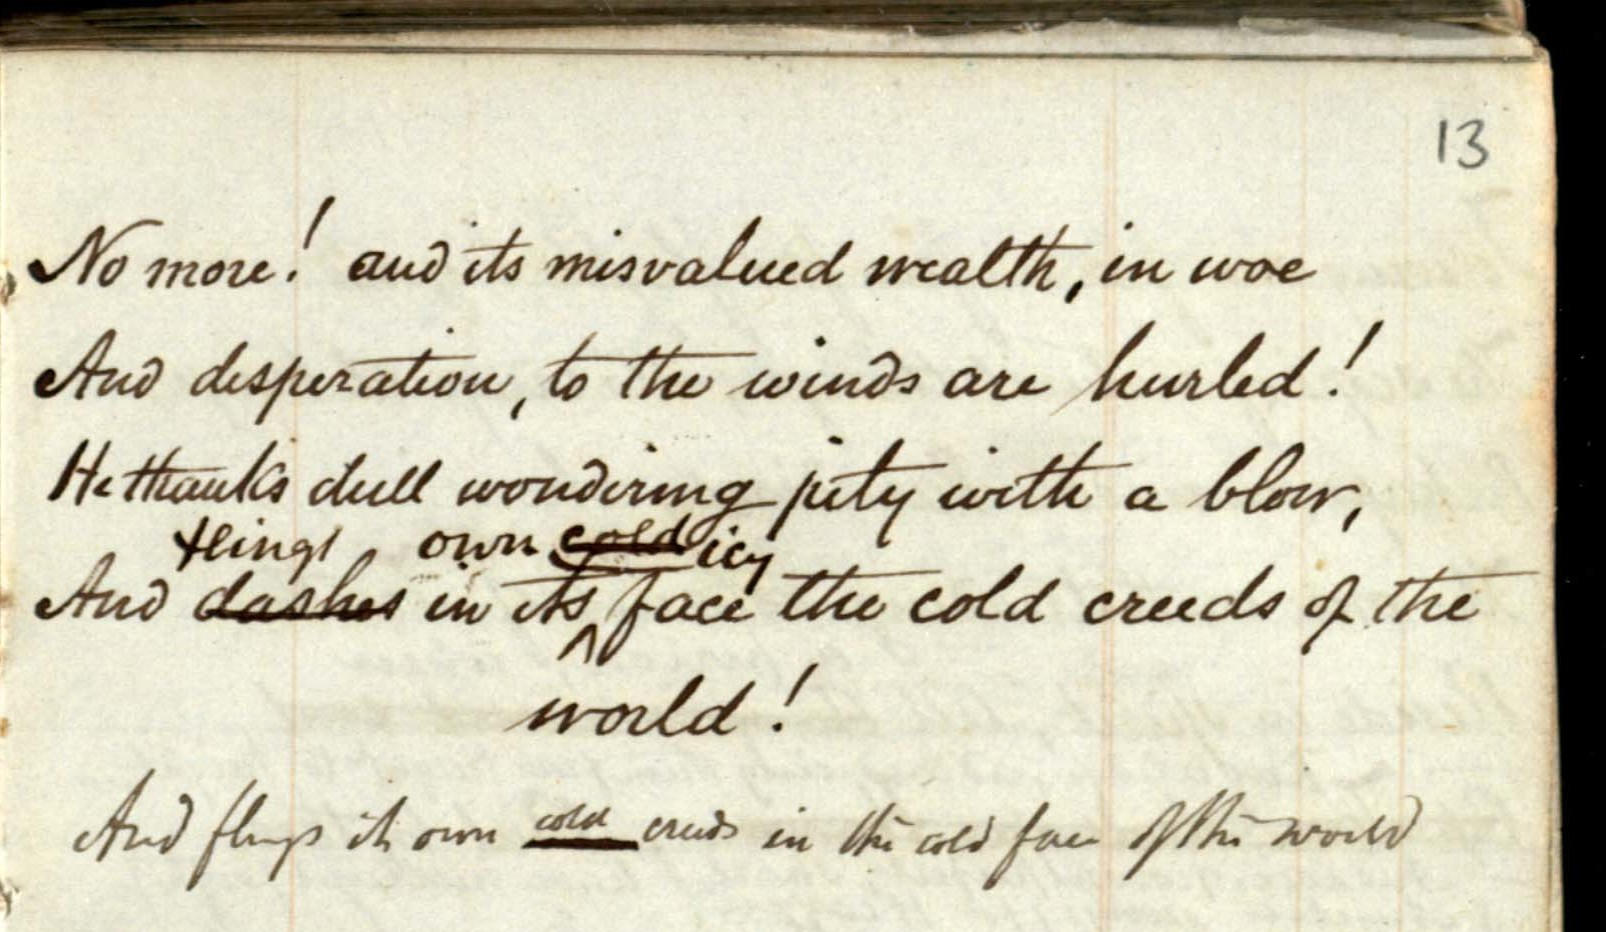 13
No more! and its misvalued wealth, in woe
And desperation, to the winds are hurled!
He thanks dull wondering pity with a blow,
flings own cold icy
And dashes in its face the cold creeds of the
world!
And flings its own cold creeds in the cold face of the world